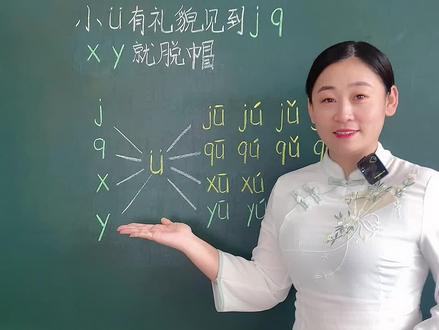 小ü有礼貌见到j q
x y就脱帽
j
q
x
y
ü
jū jú jǔ j
qū qú qǔ q
xū xú
yū yú